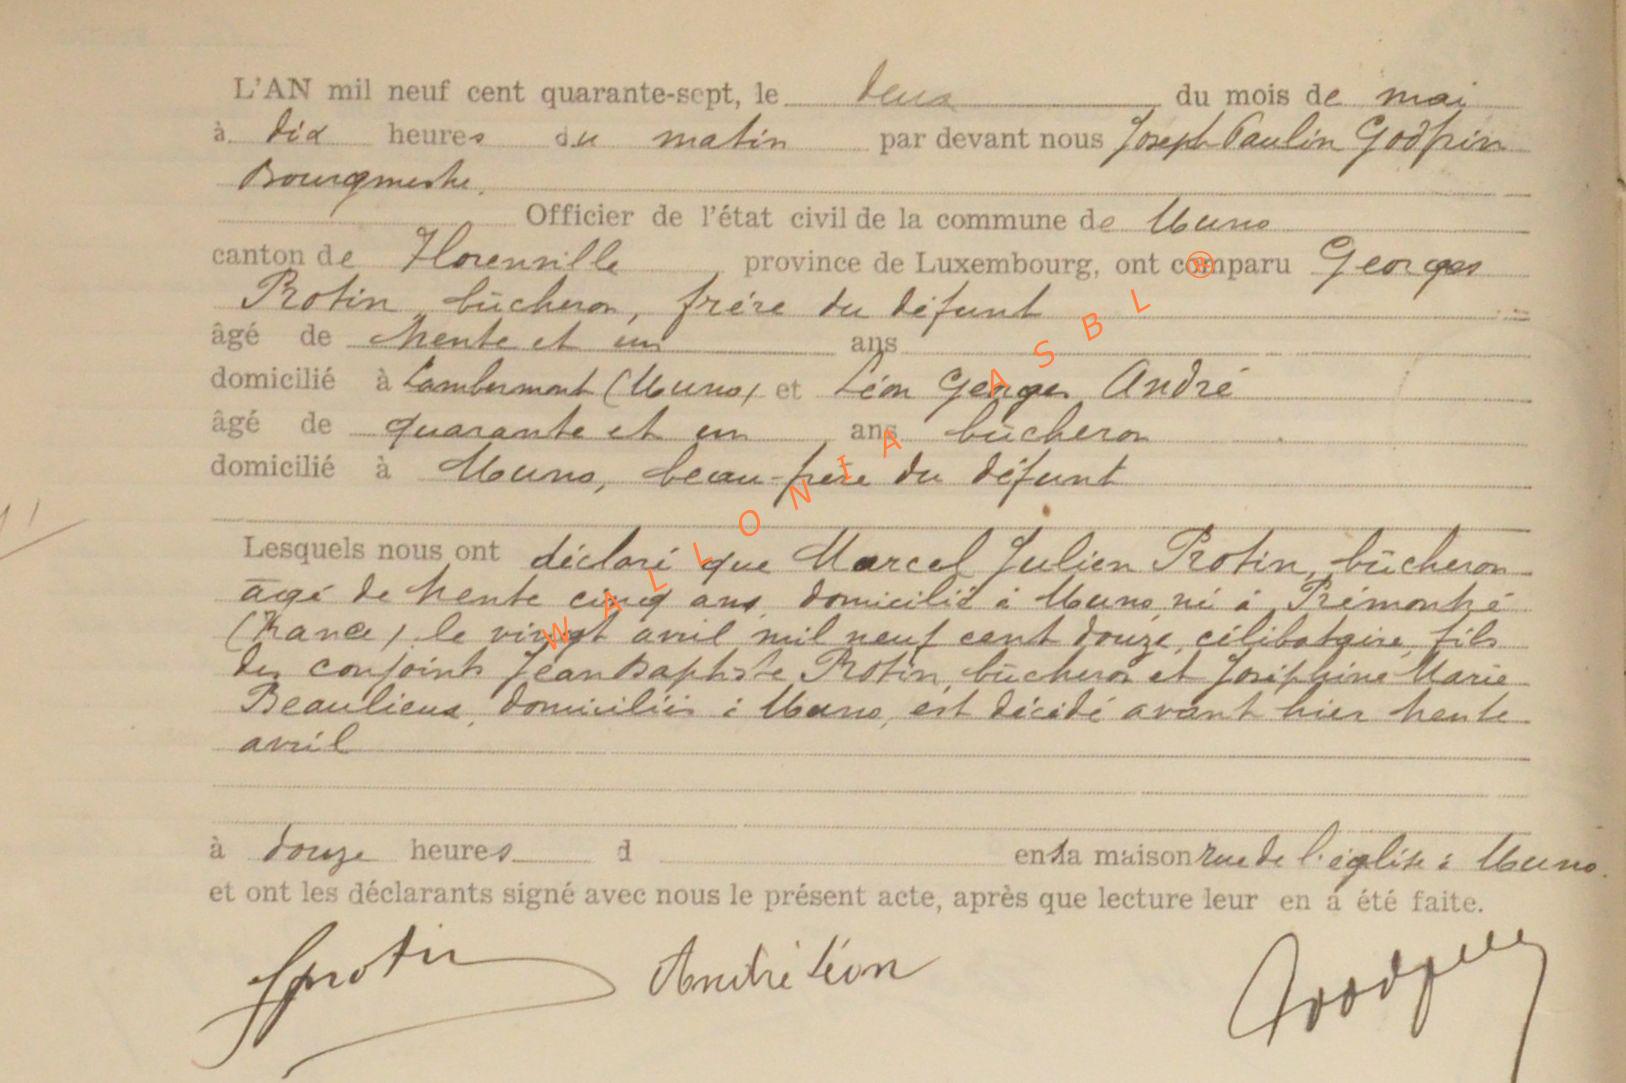 L'AN mil neuf cent quarante-sept, le deux du mois de mai
à dix heures du matin par devant nous Joseph Paulin Godfrin
Bourgmestre.
Officier de l'état civil de la commune de Muno
canton de Florenville, province de Luxembourg, ont comparu Georges
Protin, bûcheron, frère du défunt
âgé de trente et un ans
domicilié à Lambermont (Muno) et Léon Georges André
âgé de quarante et un ans bûcheron
domicilié à Muno, beau-frère du défunt
Lesquels nous ont déclaré que Marcel Julien Protin, bûcheron
âgé de trente cinq ans, domicilié à Muno, né à Prémontré
(France), le vingt avril mil neuf cent douze, célibataire, fils
des conjoints Jean Baptiste Protin, bûcheron et Joséphine Marie
Beaulieux, domiciliés à Muno, est décédé avant hier trente
avril
à douze heures d en sa maison rue de l'église à Muno.
et ont les déclarants signé avec nous le présent acte, après que lecture leur en a été faite.
GProtin André Léon Godfrin
WALLONIA ASBL ®